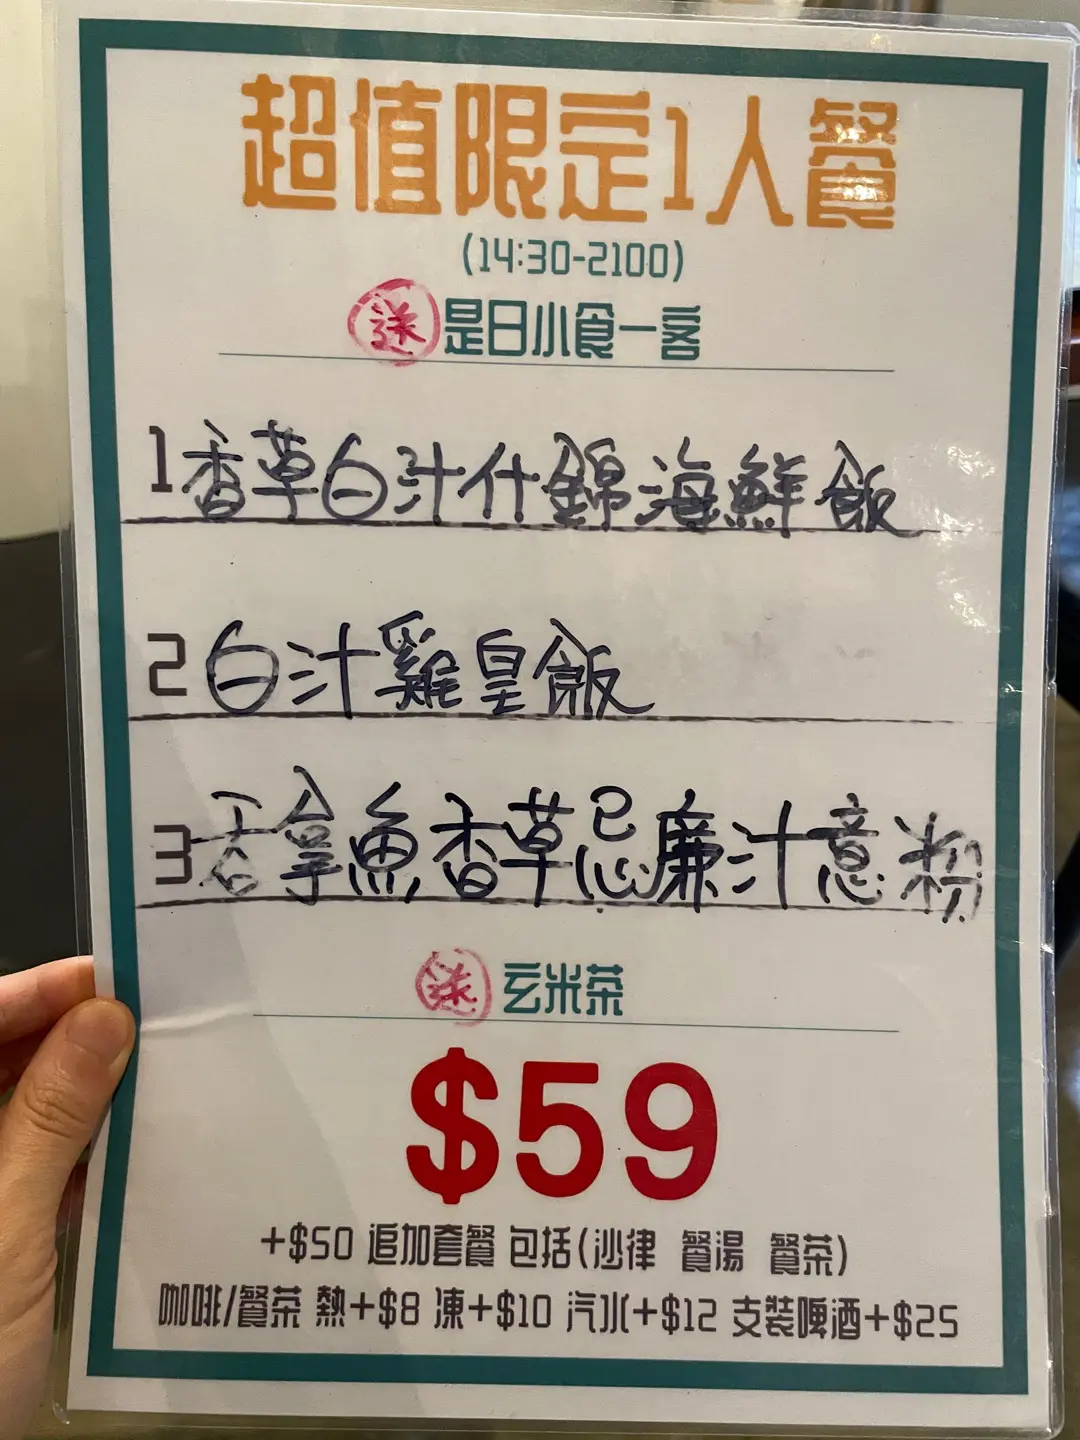 超值限定1人餐
(14:30-2100)
送是日小食一客
1香草白汁什錦海鮮飯
2白汁雞皇飯
3吞拿魚香草忌廉汁意粉
送玄米茶
$59
+$50 追加套餐 包括(沙律 餐湯 餐茶)
咖啡/餐茶 熱+$8 凍+$10 汽水+$12 支裝啤酒+$25